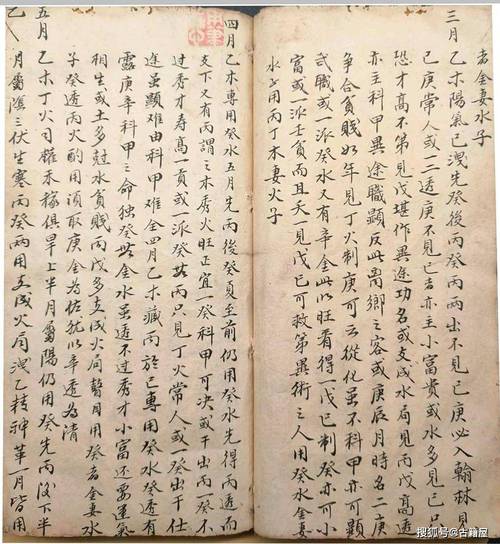 者金妻水子
三月
乙木陽氣已洩先癸後丙癸丙兩出不見己庚必入翰林見
己庚常人或一二透庚不見己者亦主小富貴或水多見己只
恐才高不第見戊堪作異途功名或支成水局見丙戊高透
亦主科甲異途職顯反此离鄉之客或庚辰月時名二庚
争合貧賤如年見丁火制庚可云從化虽不科甲亦可顯
武職或一派癸水又有辛金此以旺看得一戊己制癸亦可小
富或一派壬貧而且夭一見戊己可救第異術之人用癸水金妻
水子用丙丁木妻火子
四月乙木專用癸水五月先丙後癸夏至前仍用癸水先得丙透而
支下又有丙謂之木秀火旺正宜一癸科甲可决或干出丙一癸不
过秀才寿高一貢或一派癸丙只見丁火常人或一癸出干仕
途虽顯难由科甲难全四月乙木藏丙於巳專用癸水癸透有
露庚辛科甲之命独癸金水虽透不过秀才小富还要運氣
相生或土多尅水貧賤丙戊多支成火局瞽目用癸者金妻水
子癸透丙火酌用頃取庚金為佐犹以辛透為清
五月
乙木丁火司权禾稼俱旱上半月属陽仍用癸水先丙後下半
月属陰三伏生寒丙癸兩用支成火局洩乙精神革一月皆用
搜狐号@古籍屋